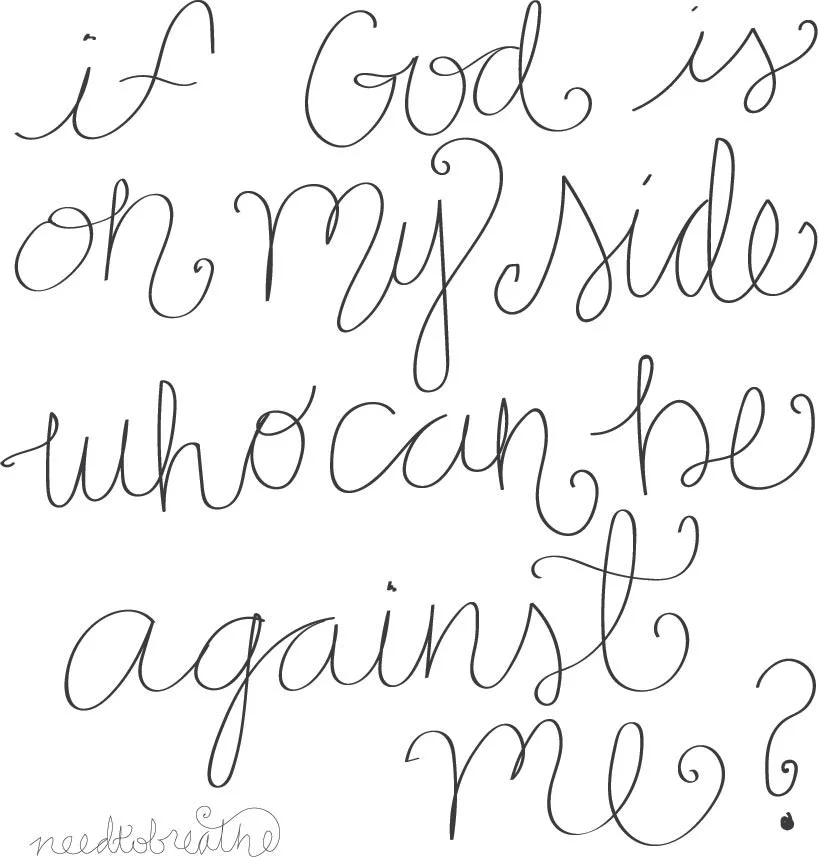 if God is
on my side
who can be
against
me?
needtobreathe